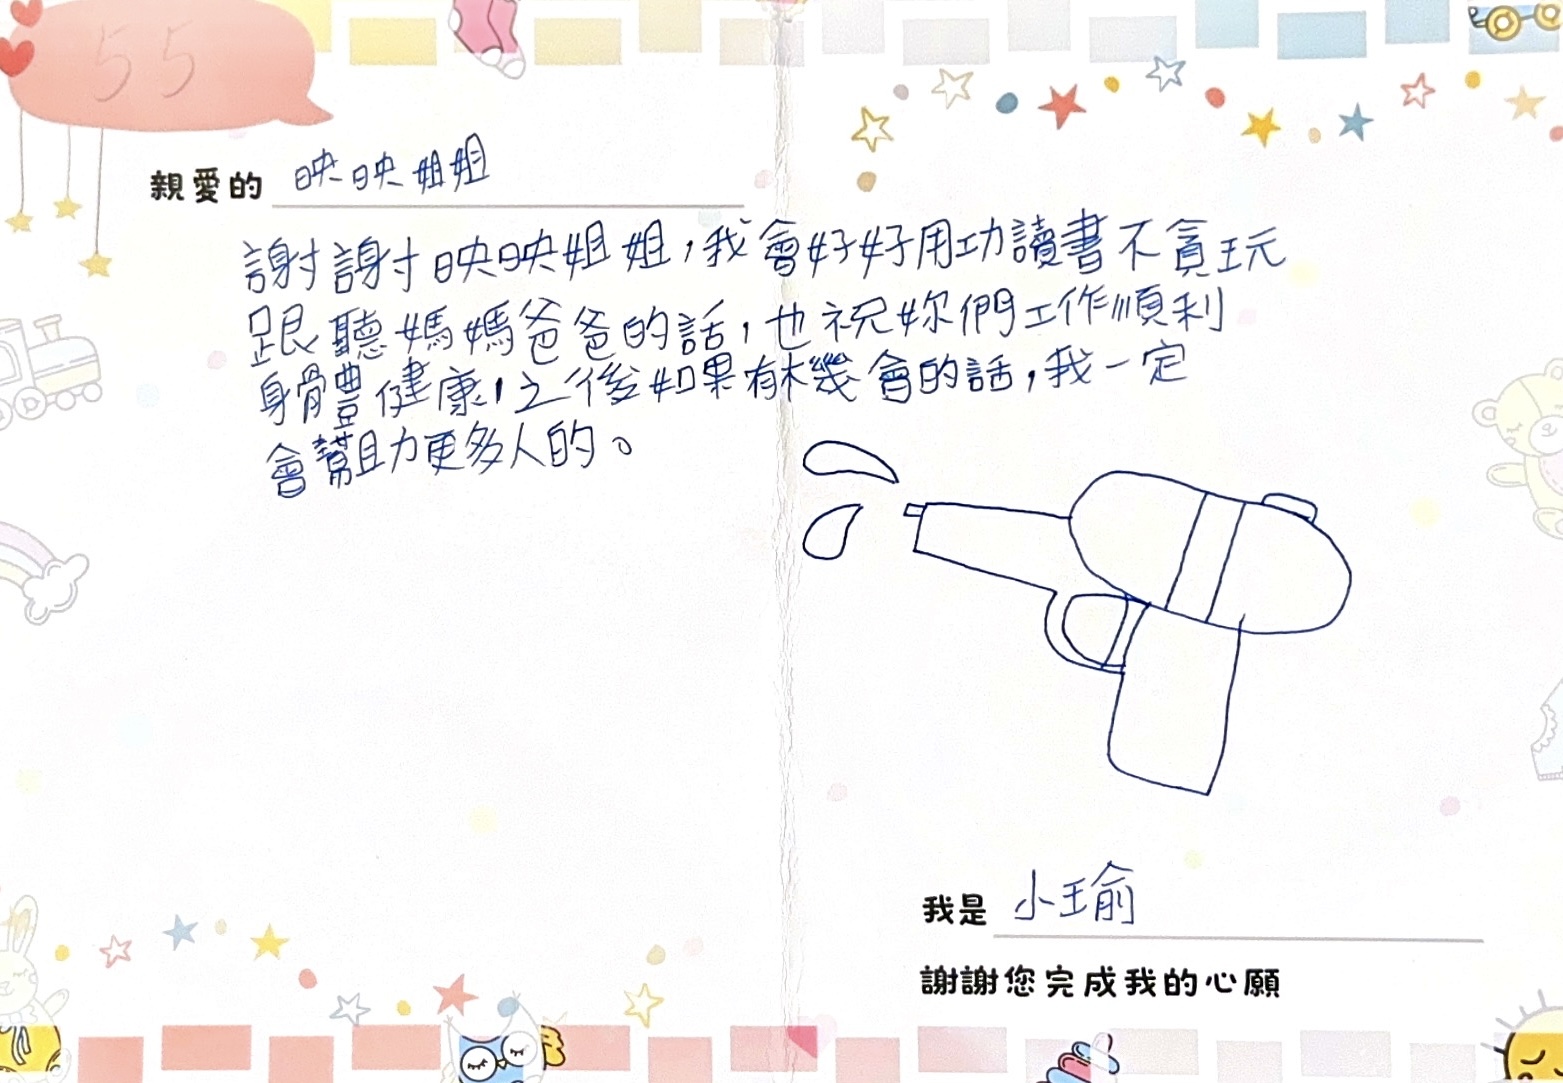 55
親愛的 映映姐姐
謝謝映映姐姐，我會好好用功讀書不貪玩
跟聽媽媽爸爸的話，也祝妳們工作順利
身體健康，之後如果有機會的話，我一定
會幫助更多人的。
我是 小瑜
謝謝您完成我的心願